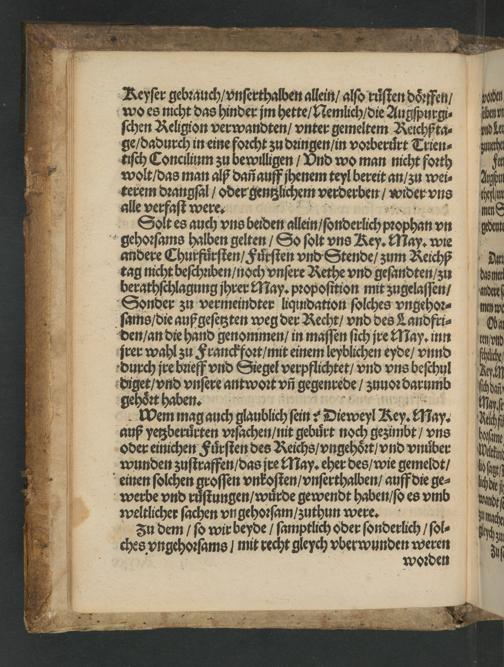 Keyser gebrauch/ vnserthalben allein/ also rüsten dörffen/
wo es nicht das hinder jm hette/ Nemlich/ die Augspurgi-
schen Religion verwandten/ vnter gemeltem Reichßta-
ge/ dadurch in eine forcht zu dringen/ in vorberürt Trien-
tisch Concilium zu bewilligen/ Vnd wo man nicht forth
wolt/ das man alß dañ auff jhenem teyl bereit an/ zu wei-
terem drangsal/ oder gentzlichem verderben/ wider vns
alle verfast were.
Solt es auch vns beiden allein/ sonderlich prophan vn
gehorsams halben gelten/ So solt vns Key. May. wie
andere Churfürsten/ Fürsten vnd Stende/ zum Reichß
tag nicht beschriben/ noch vnsere Rethe vnd gesandten/ zu
berathschlagung jhrer May. proposition mit zugelassen/
Sonder zu vermeindter liquidation solches vngehor-
sams/ die außgesetzten weg der Recht/ vnd des Landfri-
den/ an die hand genommen/ in massen sich jre May. inn
jrer wahl zu Franckfort/ mit einem leyblichen eyde/ vnnd
durch jre brieff vnd Siegel verpflichtet/ vnd vns beschul
diget/ vnd vnsere antwort vñ gegenrede/ zuuor darumb
gehört haben.
Wem mag auch glaublich sein? Dieweyl Key. May.
auß yetzberürten vrsachen/ nit gebürt noch gezimbt/ vns
oder einichen Fürsten des Reichs/ vngehört/ vnd vnüber
wunden zustraffen/ das jre May. eher des/ wie gemeldt/
einen solchen grossen vnkosten/ vnserthalben/ auff die ge-
werbe vnd rüstungen/ würde gewendt haben/ so es vmb
weltlicher sachen vngehorsam/ zuthun were.
Zu dem/ so wir beyde/ samptlich oder sonderlich/ sol-
ches vngehorsams/ mit recht gleych vberwunden weren
worden